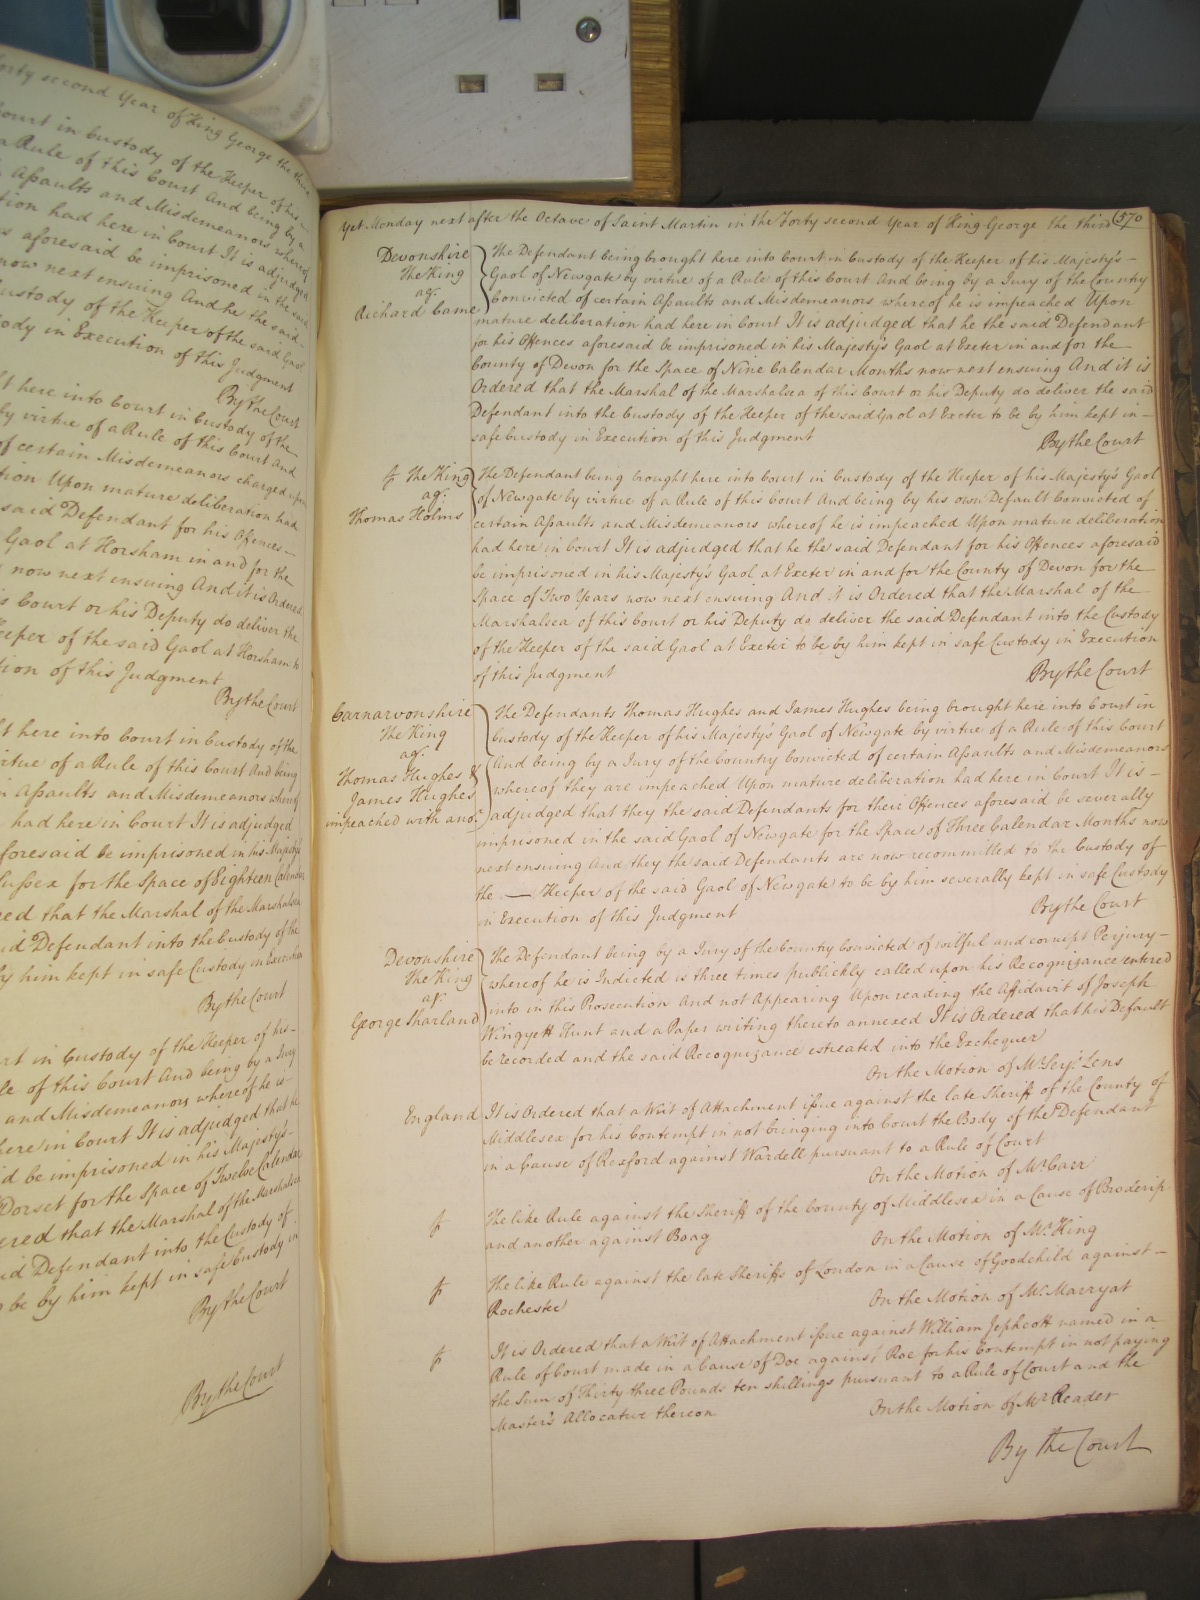 Forty second Year of King George the third
Court in Custody of the Keeper of his
a Rule of this Court And being by a
Assaults and Misdemeanors whereof
tion had here in Court It is adjudged
aforesaid be imprisoned in the said
now next ensuing And he the said
Custody of the Keeper of the said Gaol
tody in Execution of this Judgment
By the Court
t here into Court in Custody of the
by virtue of a Rule of this Court and
of certain Misdemeanors charged upon
tion Upon mature deliberation had
said Defendant for his Offences
Gaol at Horsham in and for the
now next ensuing And it is Ordered
s Court or his Deputy do deliver the
Keeper of the said Gaol at Horsham to
tion of this Judgment
By the Court
t here into Court in Custody of the
irtue of a Rule of this Court And being
n Assaults and Misdemeanors whereof
had here in Court It is adjudged
foresaid be imprisoned in his Majesty's
Sussex for the Space of Eighteen Calendar
red that the Marshal of the Marshalsea
id Defendant into the Custody of the
by him kept in safe Custody in Execution
By the Court
rt in Custody of the Keeper of his
le of this Court And being by a Jury
and Misdemeanors whereof he is
here in Court It is adjudged that he
d be imprisoned in his Majesty's
Dorset for the Space of Twelve Calendar
ered that the Marshal of the Marshalsea
id Defendant into the Custody of
o be by him kept in safe Custody in
By the Court
By the Court
Yet Monday next after the Octave of Saint Martin in the Forty second Year of King George the third 570
Devonshire
The King
ag.
Richard Came
The Defendant being brought here into Court in Custody of the Keeper of his Majesty's
Gaol of Newgate by virtue of a Rule of this Court And being by a Jury of the Country
Convicted of certain Assaults and Misdemeanors whereof he is impeached Upon
mature deliberation had here in Court It is adjudged that he the said Defendant
for his Offences aforesaid be imprisoned in his Majesty's Gaol at Exeter in and for the
County of Devon for the Space of Nine Calendar Months now next ensuing And it is
Ordered that the Marshal of the Marshalsea of this Court or his Deputy do deliver the said
Defendant into the Custody of the Keeper of the said Gaol at Exeter to be by him kept in
safe Custody in Execution of this Judgment
By the Court
The King
ag.
Thomas Holms
The Defendant being brought here into Court in Custody of the Keeper of his Majesty's Gaol
of Newgate by virtue of a Rule of this Court And being by his own Default Convicted of
certain Assaults and Misdemeanors whereof he is impeached Upon mature deliberation
had here in Court It is adjudged that he the said Defendant for his Offences aforesaid
be imprisoned in his Majesty's Gaol at Exeter in and for the County of Devon for the
Space of Two Years now next ensuing And it is Ordered that the Marshal of the
Marshalsea of this Court or his Deputy do deliver the said Defendant into the Custody
of the Keeper of the said Gaol at Exeter to be by him kept in safe Custody in Execution
of this Judgment
By the Court
Carnarvonshire
The King
ag.
Thomas Hughes &
James Hughes
impeached with ano.
The Defendants Thomas Hughes and James Hughes being brought here into Court in
Custody of the Keeper of his Majesty's Gaol of Newgate by virtue of a Rule of this Court
And being by a Jury of the Country Convicted of certain Assaults and Misdemeanors
whereof they are impeached Upon mature deliberation had here in Court It is
adjudged that they the said Defendants for their Offences aforesaid be severally
imprisoned in the said Gaol of Newgate for the Space of Three Calendar Months now
next ensuing And they the said Defendants are now recommitted to the Custody of
the — Keeper of the said Gaol of Newgate to be by him severally kept in safe Custody
in Execution of this Judgment
By the Court
Devonshire
The King
ag.
George Sharland
The Defendant being by a Jury of the Country Convicted of wilful and corrupt Perjury
whereof he is Indicted is three times publickly called upon his Recognizance entered
into in this Prosecution And not Appearing Upon reading the Affidavit of Joseph
Wingyett Hunt and a Paper writing thereto annexed It is Ordered that his Default
be recorded and the said Recognizance estreated into the Exchequer
On the Motion of Mr. Serjt. Lens
England
It is Ordered that a Writ of Attachment issue against the late Sheriff of the County of
Middlesex for his Contempt in not bringing into Court the Body of the Defendant
in a Cause of Rexford against Wardell pursuant to a Rule of Court
On the Motion of Mr. Carr
The like Rule against the Sheriff of the County of Middlesex in a Cause of Broderip
and another against Boag
On the Motion of Mr. King
The like Rule against the late Sheriffs of London in a Cause of Goodchild against
Rochester
On the Motion of Mr. Marryat
It is Ordered that a Writ of Attachment issue against William Jephcott named in a
Rule of Court made in a Cause of Doe against Roe for his Contempt in not paying
the Sum of Thirty three Pounds ten shillings pursuant to a Rule of Court and the
Master's Allocatur thereon
On the Motion of Mr. Reader
By the Court